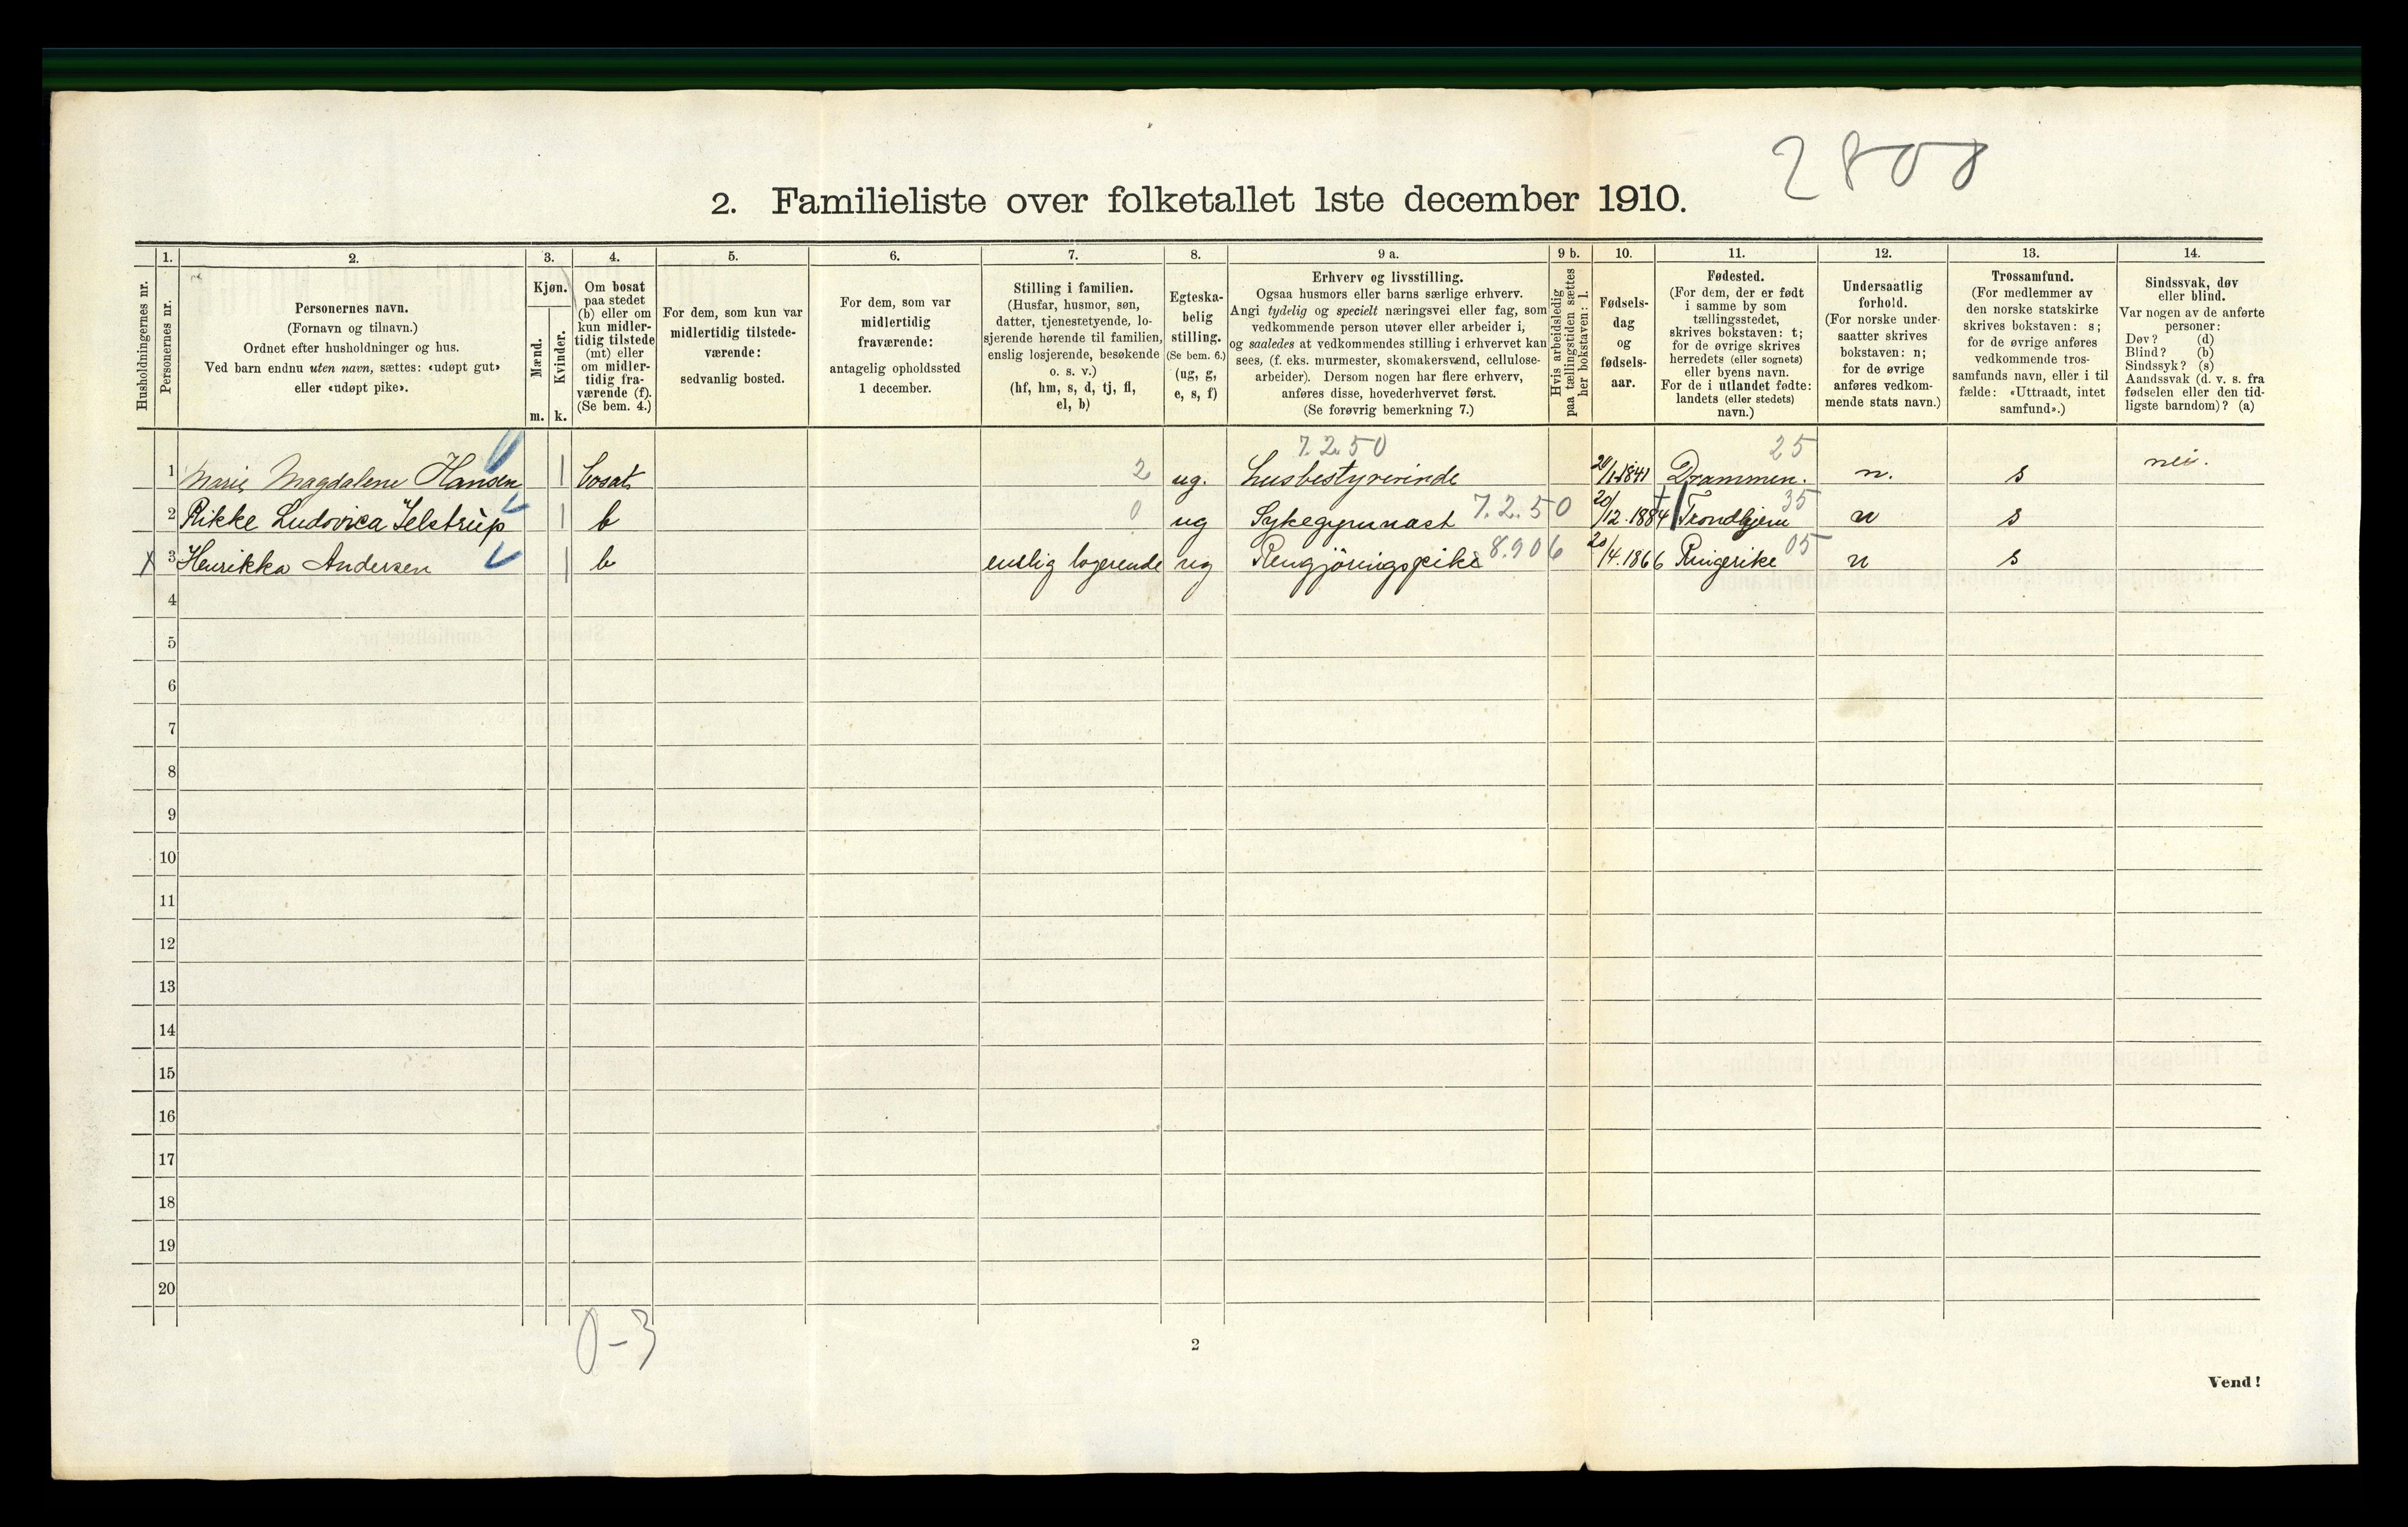 2808
2. Familieliste over folketallet 1ste december 1910.
Husholdningernes nr.
1.
Personernes nr.
2.
Personernes navn.
(Fornavn og tilnavn.)
Ordnet efter husholdninger og hus.
Ved barn endnu uten navn, sættes: «udøpt gut»
eller «udøpt pike».
3.
Kjøn.
Mænd.
Kvinder.
m. k.
4.
Om bosat
paa stedet
(b) eller om
kun midler-
tidig tilstede
(mt) eller
om midler-
tidig fra-
værende (f).
(Se bem. 4.)
5.
For dem, som kun var
midlertidig tilstede-
værende:
sedvanlig bosted.
6.
For dem, som var
midlertidig
fraværende:
antagelig opholdssted
1 december.
7.
Stilling i familien.
(Husfar, husmor, søn,
datter, tjenestetyende, lo-
sjerende hørende til familien,
enslig losjerende, besøkende
o. s. v.)
(hf, hm, s, d, tj, fl,
el, b)
8.
Egteska-
belig
stilling.
(Se bem. 6.)
(ug, g,
e, s, f)
9 a.
Erhverv og livsstilling.
Ogsaa husmors eller barns særlige erhverv.
Angi tydelig og specielt næringsvei eller fag, som
vedkommende person utøver eller arbeider i,
og saaledes at vedkommendes stilling i erhvervet kan
sees, (f. eks. murmester, skomakersvend, cellulose-
arbeider). Dersom nogen har flere erhverv,
anføres disse, hovederhvervet først.
(Se forøvrig bemerkning 7.)
9 b.
Hvis arbeidsledig
paa tællingstiden sættes
her bokstaven: l.
10.
Fødsels-
dag
og
fødsels-
aar.
11.
Fødested.
(For dem, der er født
i samme by som
tællingsstedet,
skrives bokstaven: t;
for de øvrige skrives
herredets (eller sognets)
eller byens navn.
For de i utlandet fødte:
landets (eller stedets)
navn.)
12.
Undersaatlig
forhold.
(For norske under-
saatter skrives
bokstaven: n;
for de øvrige
anføres vedkom-
mende stats navn.)
13.
Trossamfund.
(For medlemmer av
den norske statskirke
skrives bokstaven: s;
for de øvrige anføres
vedkommende tros-
samfunds navn, eller i til
fælde: «Uttraadt, intet
samfund».)
14.
Sindssvak, døv
eller blind.
Var nogen av de anførte
personer:
Døv? (d)
Blind? (b)
Sindssyk? (s)
Aandssvak (d. v. s. fra
fødselen eller den tid-
ligste barndom)? (a)
7.2.50 25
1 Marie Magdalene Hansen | bosat 2 ug. husbestyrerinde 1841 Drammen. n. s nei.
2 Rikke Ludovica Jelstrup | b 0 ug Sykegymnast 7.2.50 20/12.1884 Trondhjem 35 n s
X 3 Henrikka Andersen | b enslig logerende ug Rengjöringspike 8.906 /4.1866 Ringerike 05 n s
4
5
6
7
8
9
10
11
12
13
14
15
16
17
18
19
20
0-3
2
Vend!